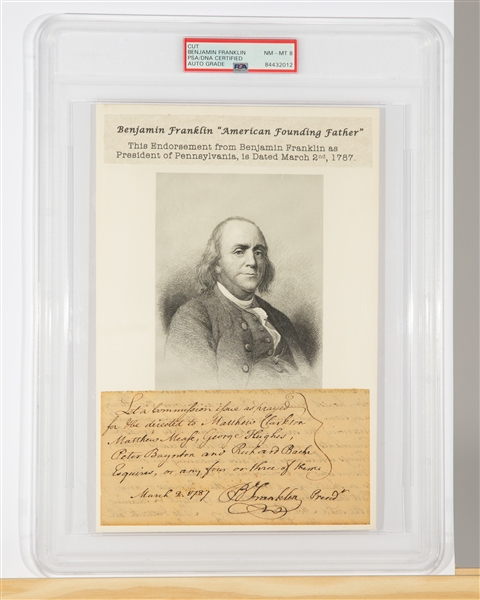 CUT
BENJAMIN FRANKLIN
PSA/DNA CERTIFIED
AUTO GRADE
NM - MT 8
PSA
84432012
Benjamin Franklin "American Founding Father"
This Endorsement from Benjamin Franklin as
President of Pennsylvania, is Dated March 2nd, 1787.
Let a Commission issue as prayed
for the directed to Matthew Clarkson
Matthew Mease, George Hughes,
Peter Baynton and Richard Bache
Esquires, or any four or three of them
March 2. 1787 B Franklin Presidt